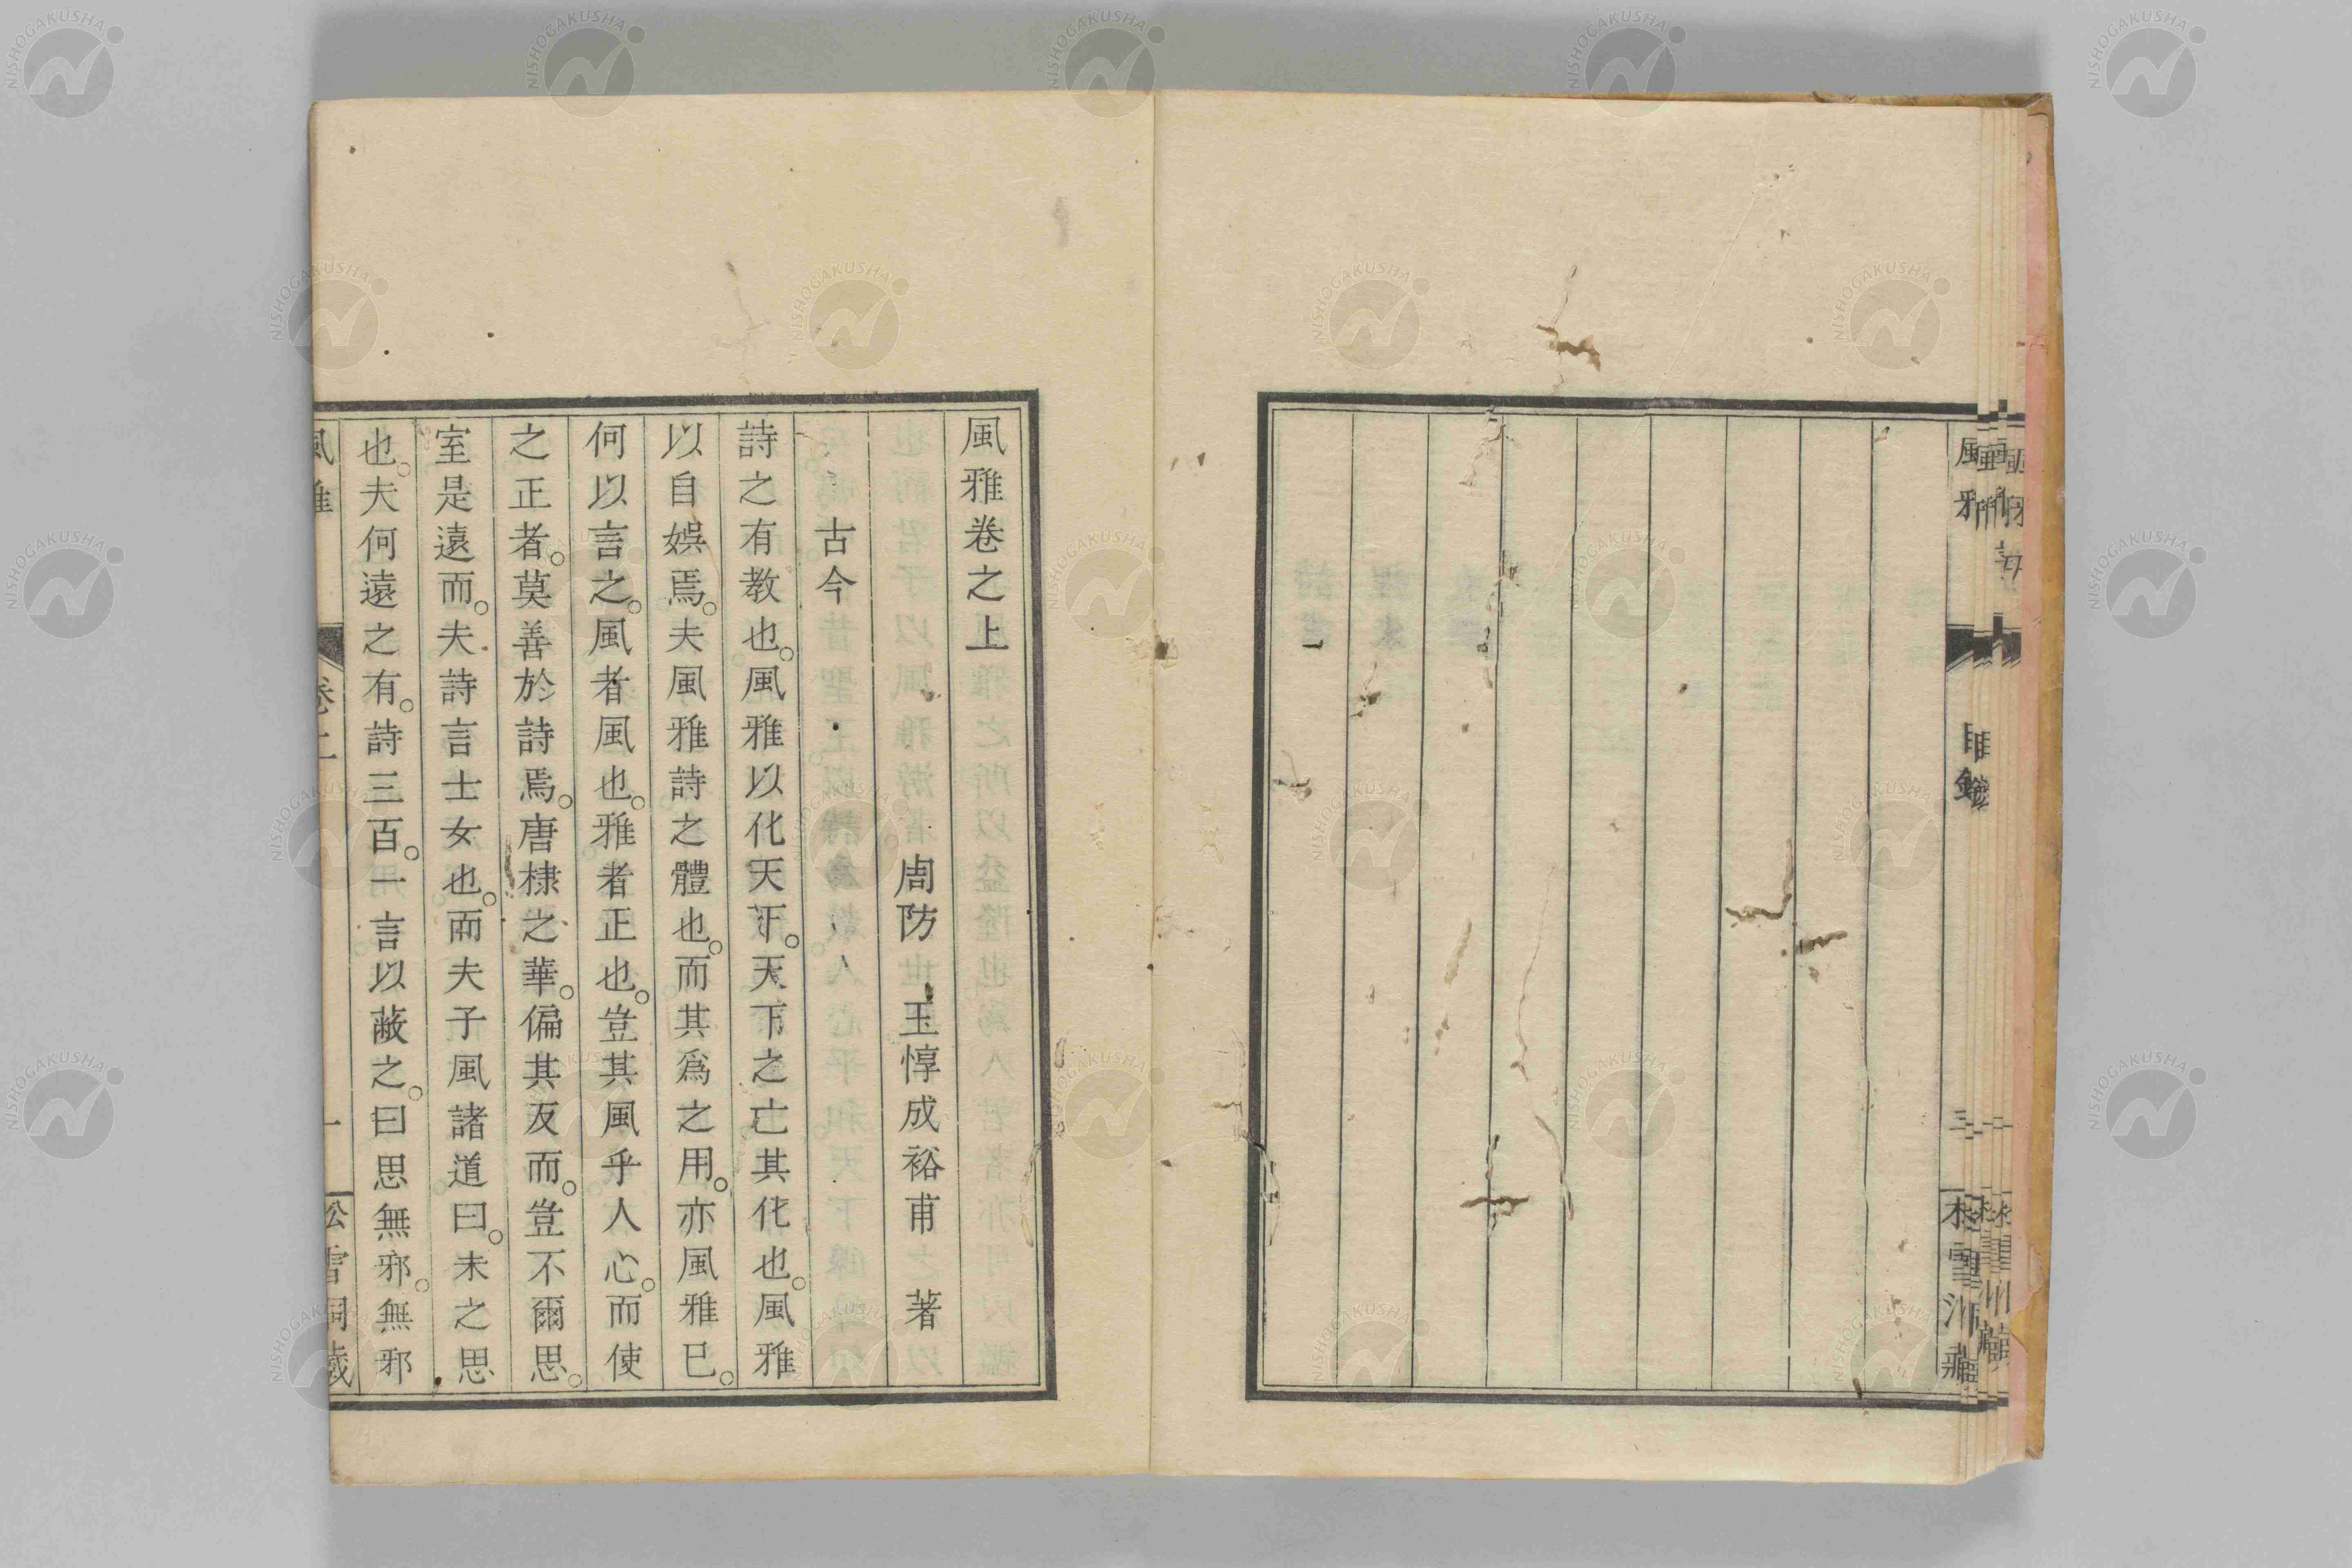 風雅卷之上
周防 玉惇成裕甫 著
古今
詩之有教也。風雅以化天下。天下之亡其化也。風雅
以自娛焉。夫風雅詩之體也。而其爲之用。亦風雅已。
何以言之。風者風也。雅者正也。豈其風乎人心。而使
之正者。莫善於詩焉。唐棣之華。偏其反而。豈不爾思。
室是遠而。夫詩言士女也。而夫子風諸道曰。未之思
也。夫何遠之有。詩三百。一言以蔽之。曰思無邪。無邪
風雅 卷上 一